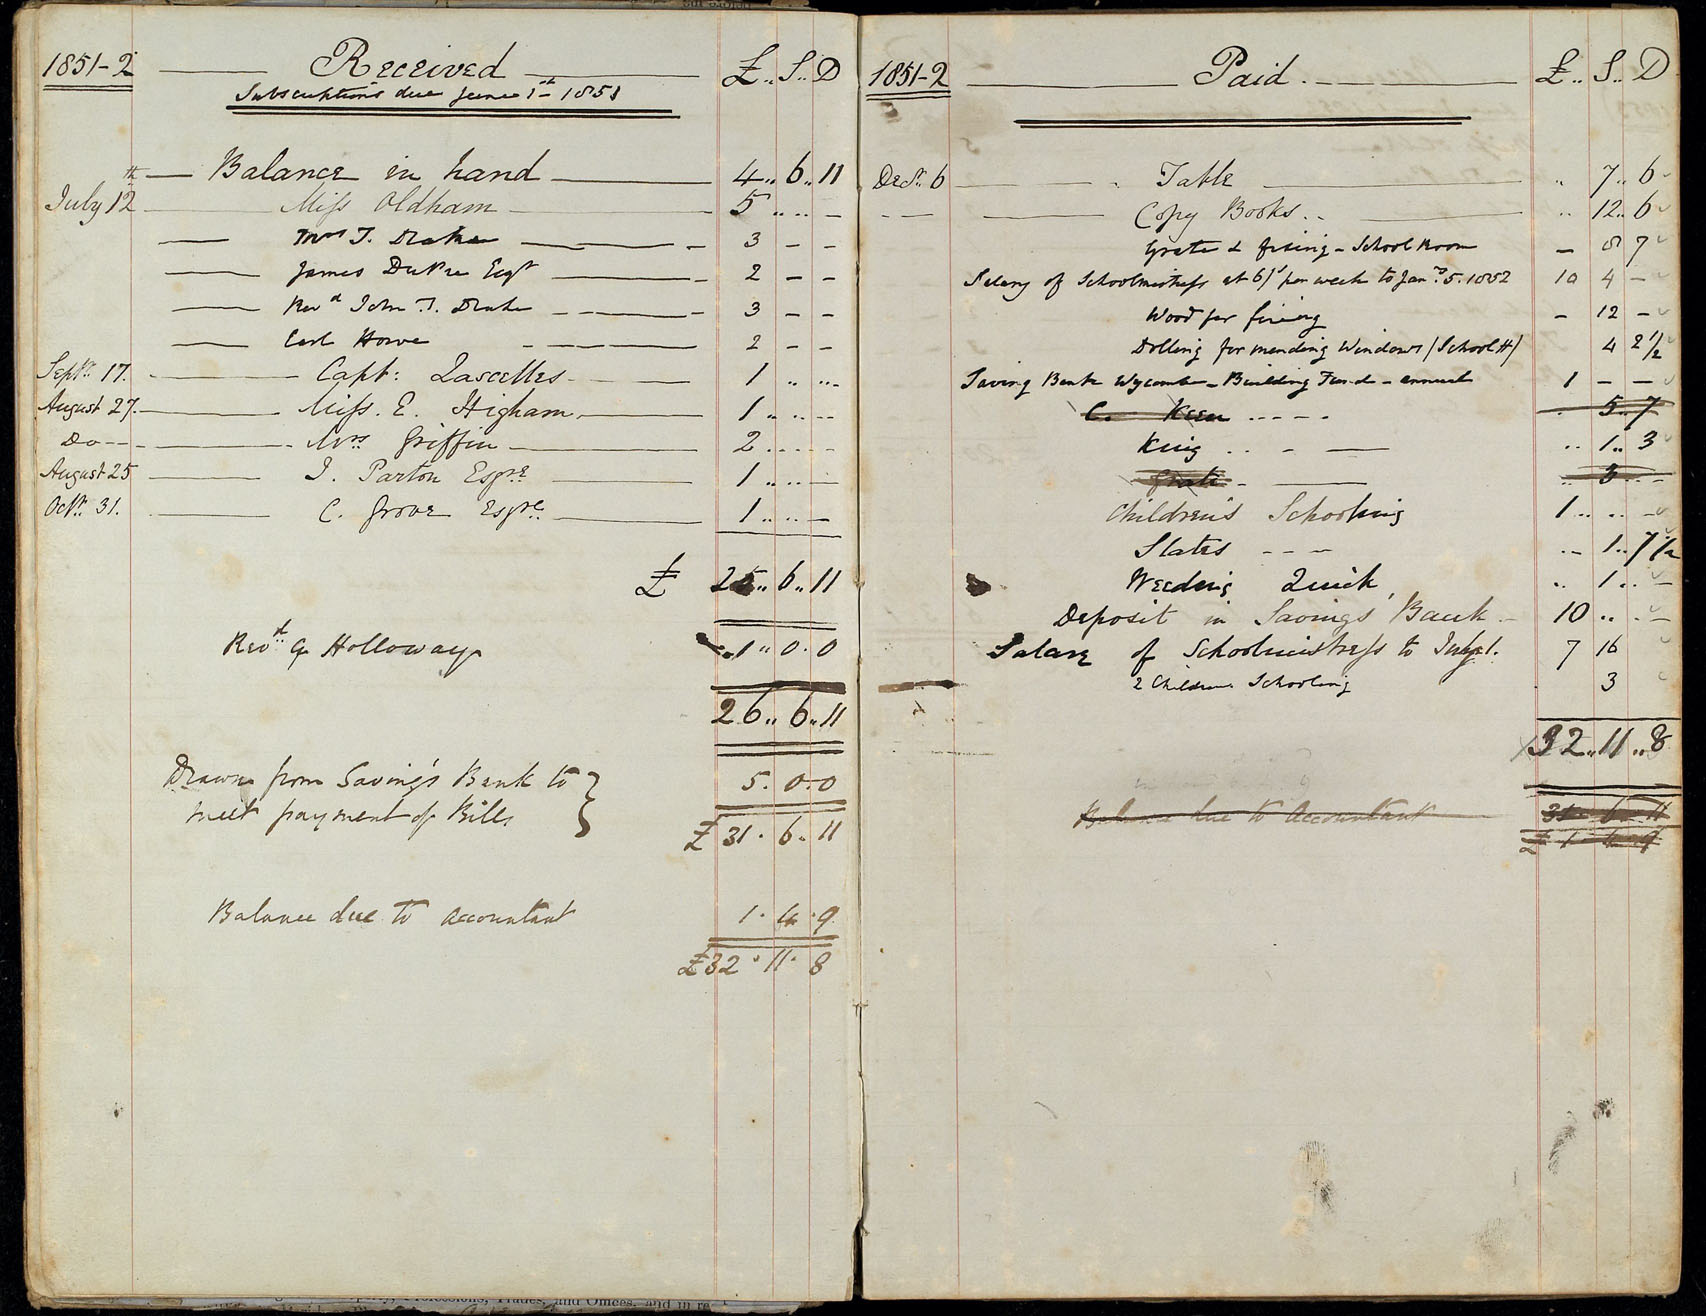 1851-2 Received £ .. S .. D
Subscriptions due June 1st 1851
Balance in hand 4 .. 6 .. 11
July 12th Miss Oldham 5 .. .. -
Mrs T. Drake 3 - -
James DuPre Esqr 2 - -
Revd John T. Drake 3 - -
Earl Howe 2 - -
Septr 17. Capt: Lascelles 1 .. .. -
August 27. Miss. E. Higham 1 .. .. -
Do -- Mrs Griffin 2 .. .. -
August 25 I. Parton Esqre 1 .. .. -
Octr 31. C. Grove Esqre 1 .. .. -
£ 25 .. 6 .. 11
Revd G Holloway 1 .. 0 . 0
26 .. 6 .. 11
Drawn from Saving's Bank to } 5 . 0 . 0
meet payment of Bills
£ 31 . 6 . 11
Balance due to Accountant 1 . 4 . 9
£ 32 . 11 . 8
1851-2 Paid. £ .. S .. D
Decr 6 Table .. 7 .. 6
Copy Books .. 12 .. 6
Grate & fixing - School Room - 8 7
Salary of Schoolmistress at 6/s per week to Jany 5. 1852 10 4 -
Wood for fireing - 12 -
Dolling for mending Windows (School H) 4 2 1/2
Saving Bank Wycombe - Building Fund - annual 1 - -
C. Keen .... 5 .. 7
King .. 1 .. 3
Grate - 3 .. -
Children's Schooling 1 .. .. -
Slates - - - .. 1 .. 7 1/2
Weeding Quick .. 1 .. -
Deposit in Savings Bank 10 .. .. -
Salary of Schoolmistress to July 1. 7 16
2 Childrens Schooling 3
32 .. 11 .. 8
Balance due to Accountant 31 . 6 . 11
£ 1 . 4 . 9